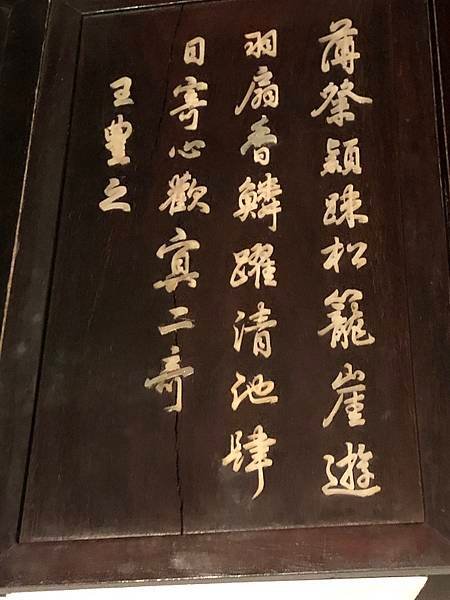 薄粲穎踈松籠崖遊
羽扇香鱗躍清池肆
目寄心歡㝠二奇
王豐之